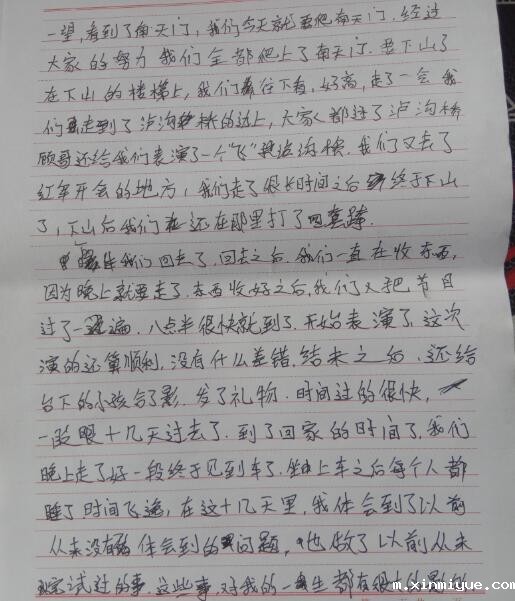 一望,看到了南天门,我们今天就要爬南天门.经过
大家的努力我们全部爬上了南天门.要下山了
在下山的楼梯上,我们往下看,好高,走了一会我
们走到了泸沟桥的边上,大家都过了泸沟桥
顾哥还给我们表演了一个"飞"泸沟桥.我们又去了
红军开会的地方,我们走了很长时间之后终于下山
了,下山后我们还在那里打了
我们回去了.回去之后.我们一直在收东西,
因为晚上就要走了.东西收好之后,我们又把节目
过了一遍.八点半很快就到了.开始表演了.这次
演的还算顺利,没有什么差错.结束之后.还给
台下的小孩合了影.发了礼物.时间过的很快,
一眨眼十几天过去了.到了回家的时间了,我们
晚上走了好一段终于见到车了.上车之后每个人都
睡了.时间飞逝,在这十几天里,我体会到了以前
从来没有体会到的问题,也做了以前从未
试过的事.这些事,对我的一生都有很大的影响
m.xinmiyue.com